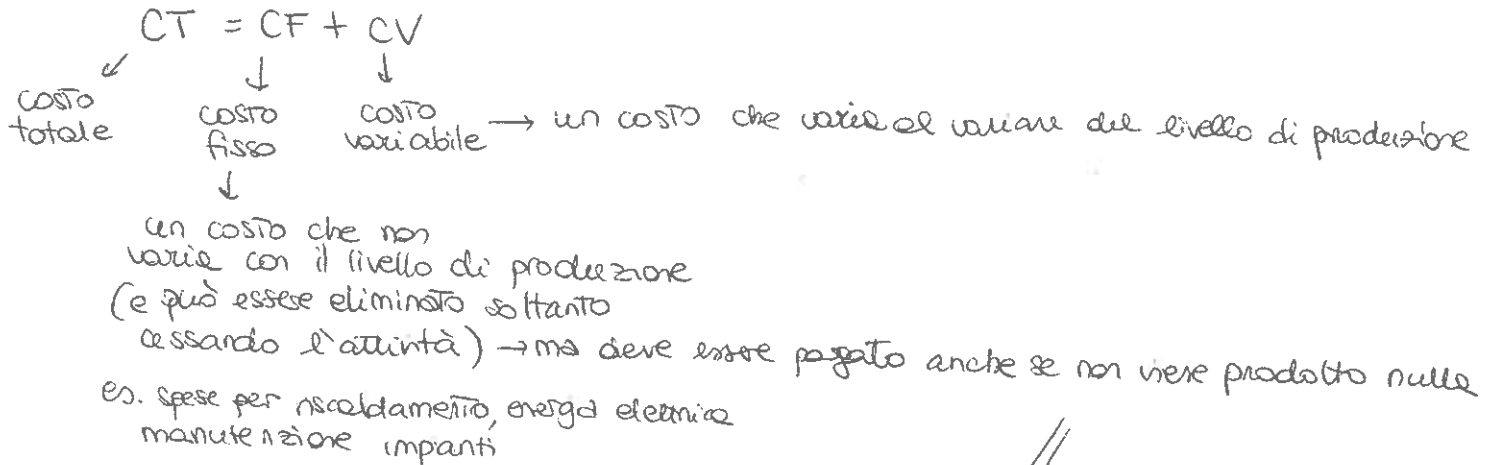 CT = CF + CV
costo totale
costo fisso
costo variabile → un costo che varia al variare del livello di produzione
un costo che non
varia con il livello di produzione
(e può essere eliminato soltanto
cessando l'attività) → ma deve essere pagato anche se non viene prodotto nulla
es. spese per riscaldamento, energia elettrica
manutenzione impianti